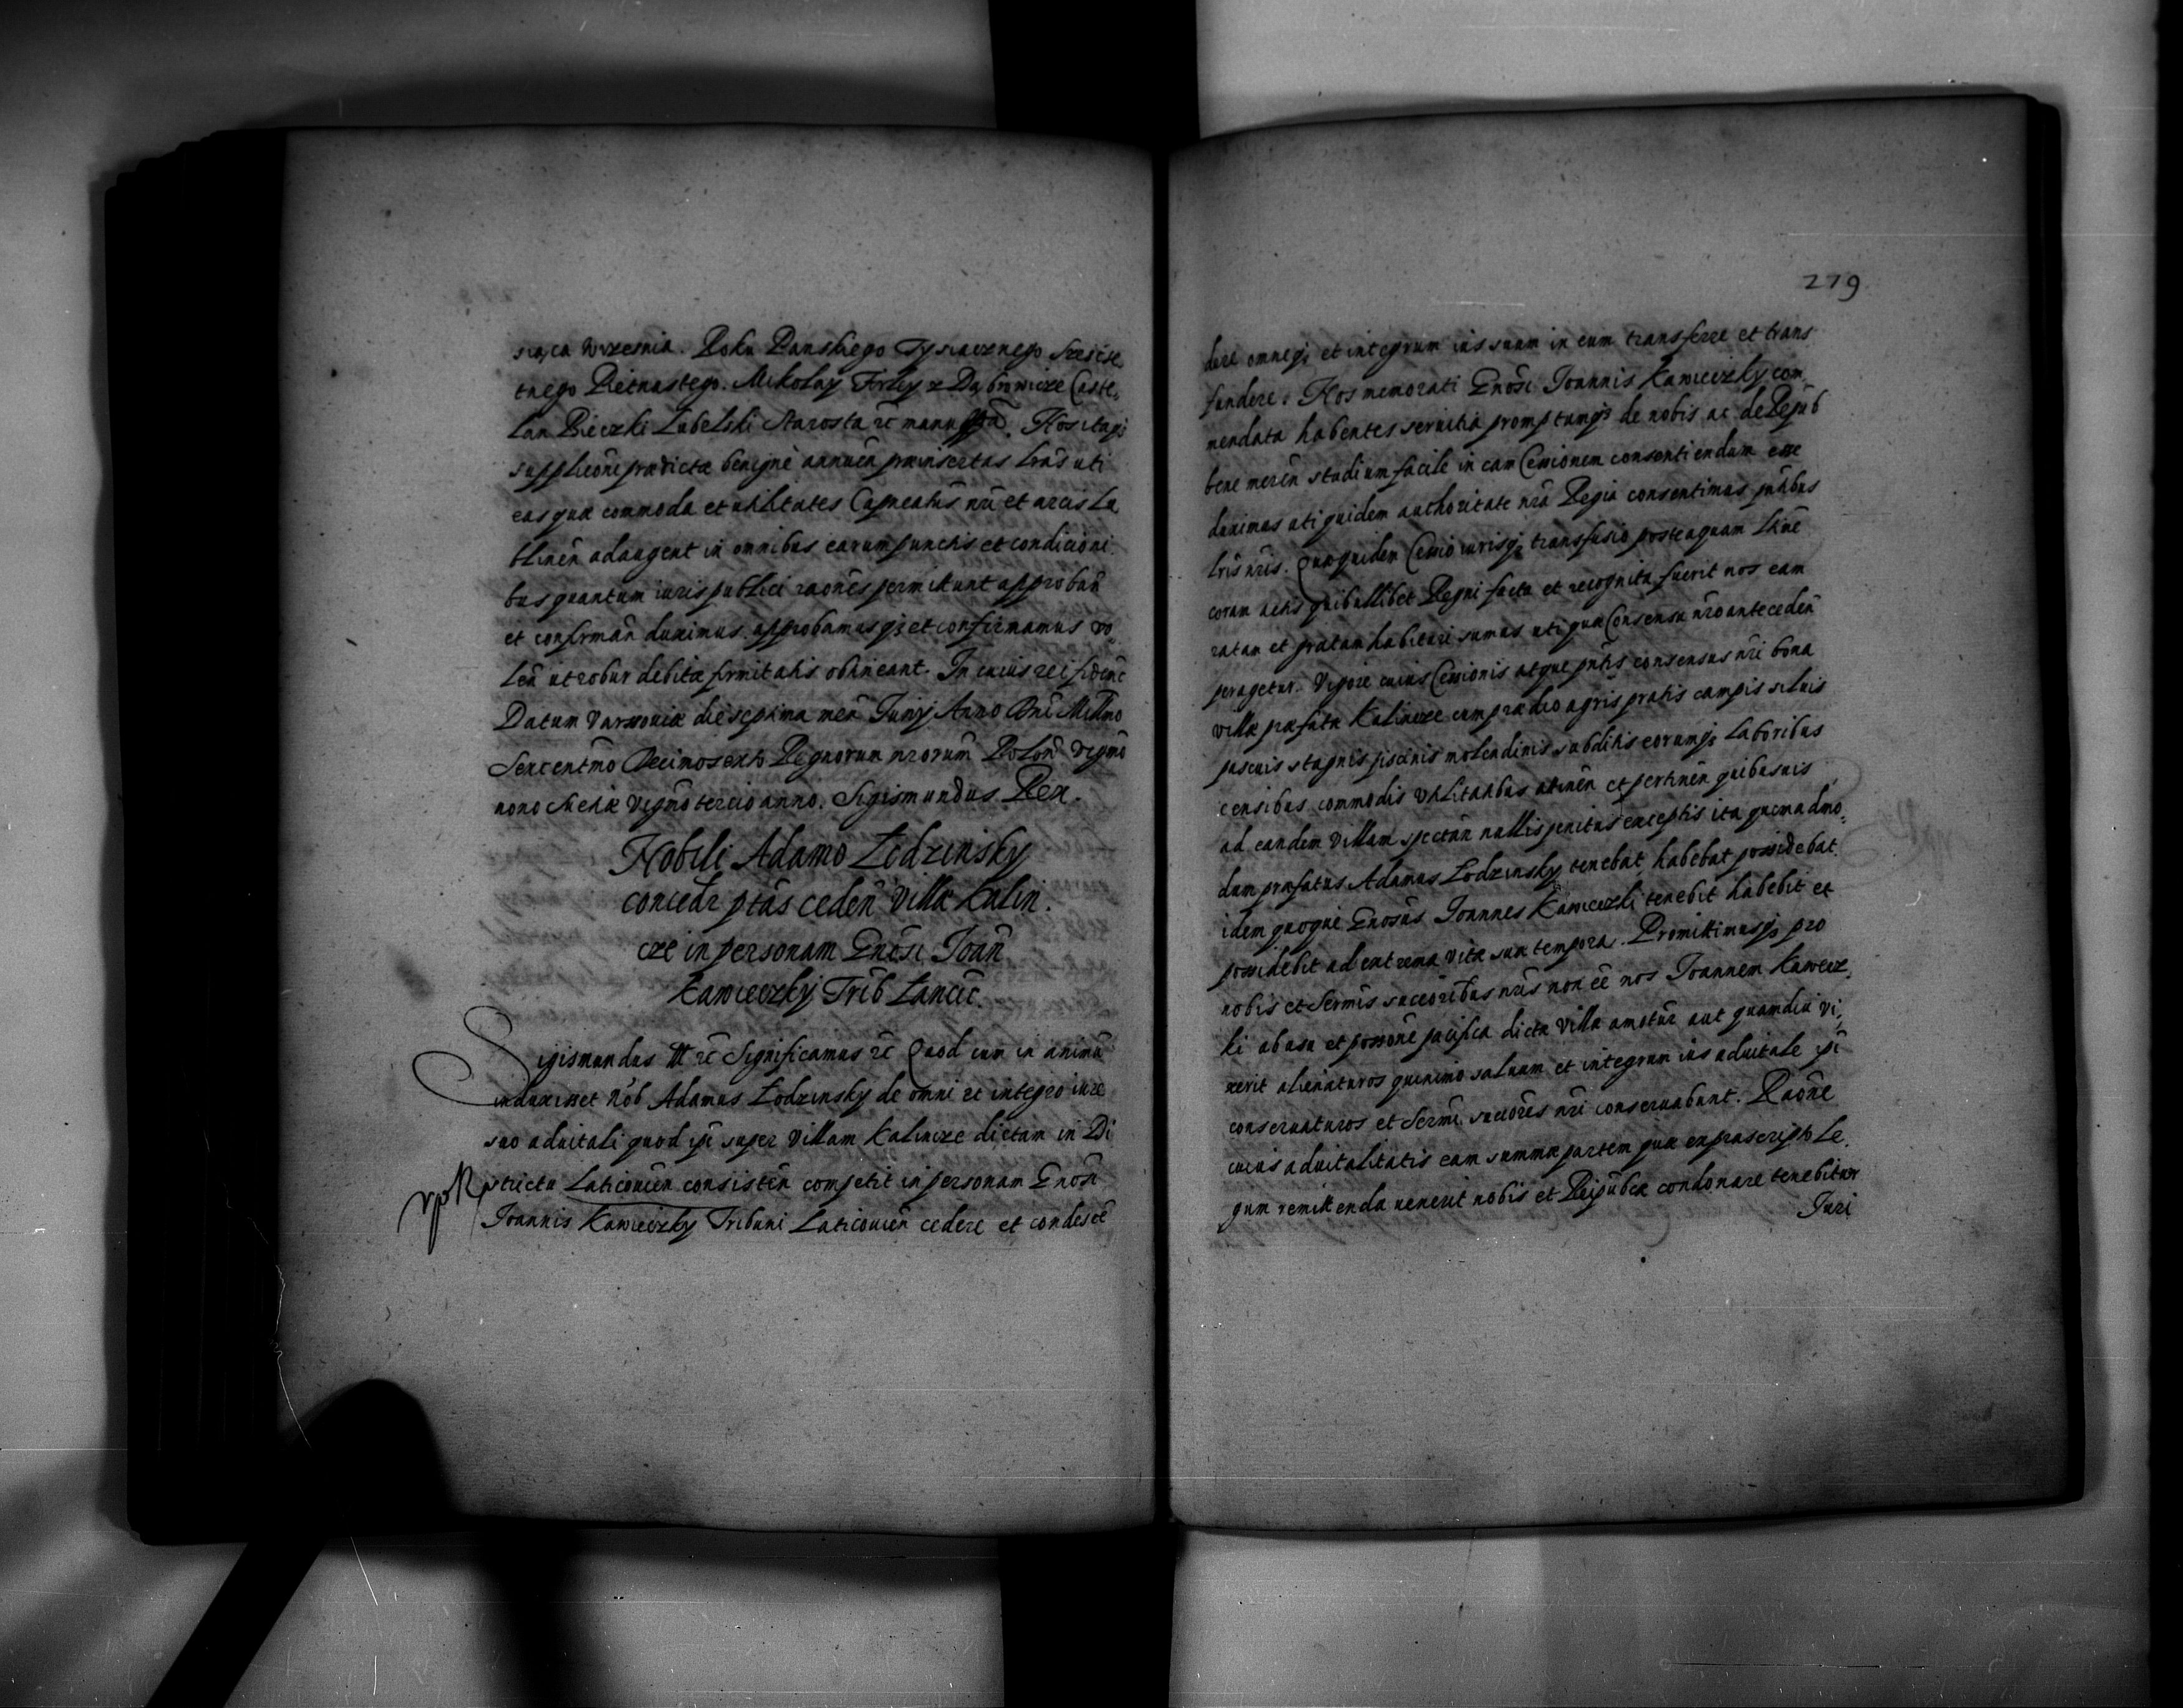 siąca Wrzesnia. Roku Panskiego Tysiącznego Szescse
tnego Pietnastego. Mikołay Firley z Dąbrowicze Caste,
lan Bieczki Lubelski Starosta &c manu ppa. Nos itaq;
supplicõni prædictæ benignè annuẽn præinsertas lrãs uti
eas quæ commoda et utilitates Capneatûs nri et arcis Lu
blinẽn adaugent in omnibus earum punctis et condicioni
bus quantum iuris publici raõnes permittunt approbãn
et confirmãn duximus. approbamusq; et confirmamus vo,
lẽn ut robur debitæ firmitatis obtineant. In cuius rei fidem &c
Datum Varsoviæ die septima mẽn Junij Anno Dni Millmo
Sexcentmo Decimosexto Regnorum nrorum Polon̄ Vigmo
nono Sveciæ vigmo tercio anno. Sigismundus Rex.
Nobili Adamo Łodzinsky
concedr ptãs cedẽn Villæ Kalin.
cze in personam Gnõsi Joan̄
Kawieczky Trib Lancic.
Sigismundus III &c Significamus &c Quod cum in animũ
induxisset Nob Adamus Łodzinsky de omni et integro iure
suo aduitali quod ipi super Villam Kalincze dictam in Di
strictu Laticouiẽn consistẽn competit in personam Gnõsi
Joannis Kawieczky Tribuni Laticouiẽn cedere et condescẽ
279
dere omneq; et integrum ius suum in eum transferre et trans
fundere: Nos memorati Gnõsi Joannis Kawieczky com,
mendata habentes seruitia promptumq; de nobis ac de Repub
bene merẽn studium facile in eam Cessionem consentiendum esse
duximus uti quidem authoritate nra Regia consentimus pñtibus
lris nris. Quæquidem Cessio iurisq; transfusio posteaquam ltime
coram actis quibuslibet Regni facta et recognita fuerit nos eam
ratam et gratam habituri sumus uti quæ Consensu nro antecedẽn
peragetur. Vigore cuius Cessionis atque pñtis consensus nri bona
villæ præfatæ Kalincze cum prædio agris pratis campis siluis
pascuis stagnis piscinis molendinis subditis eorumq; laboribus
censibus commodis utilitatibus atinẽn et pertinẽn quibusuis
ad eandem Villam spectãn nullis penitus exceptis ita quemadmo,
dum præfatus Adamus Łodzinsky tenebat habebat possidebat
idem quoque Gnosus Joannes Kawieczki tenebit habebit et
possidebit ad extrema vitæ suæ tempora. Promittimusq; pro
nobis et Sermis succõribus nris non eẽ nos Joannem Kawiecz,
ki ab usu et possõne pacifica dictæ Villæ amotûr aut quamdiu vi,
xerit alienaturos quinimo saluum et integrum ius aduitale ipi
conseruaturos et Sermi succõres nri conseruabunt. Raõne
cuius aduitalitatis eam summæ partem quæ ex præscripto Le,
gum remittenda uenerit nobis et Reipublicæ condonare tenebitur
Juri